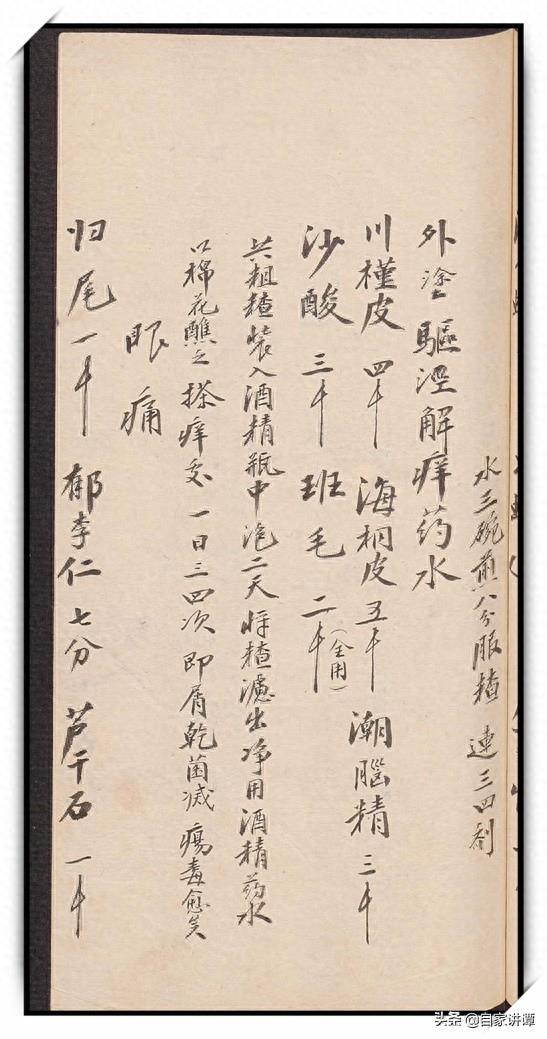 水三碗煎八分服揸 連三四剂
外塗驅溼解痒药水
川槿皮 四千 海桐皮 五千 潮腦精 三千
沙酸 三千 班毛 二千(全用)
共粗揸裝入酒精瓶中泡二天将揸濾出净用酒精药水
以棉花醮之搽痒处一日三四次即屑乾菌滅瘍毒愈矣
眼痛
归尾 一千 郁李仁 七分 芦干石 一千
头条 @自家讲谭